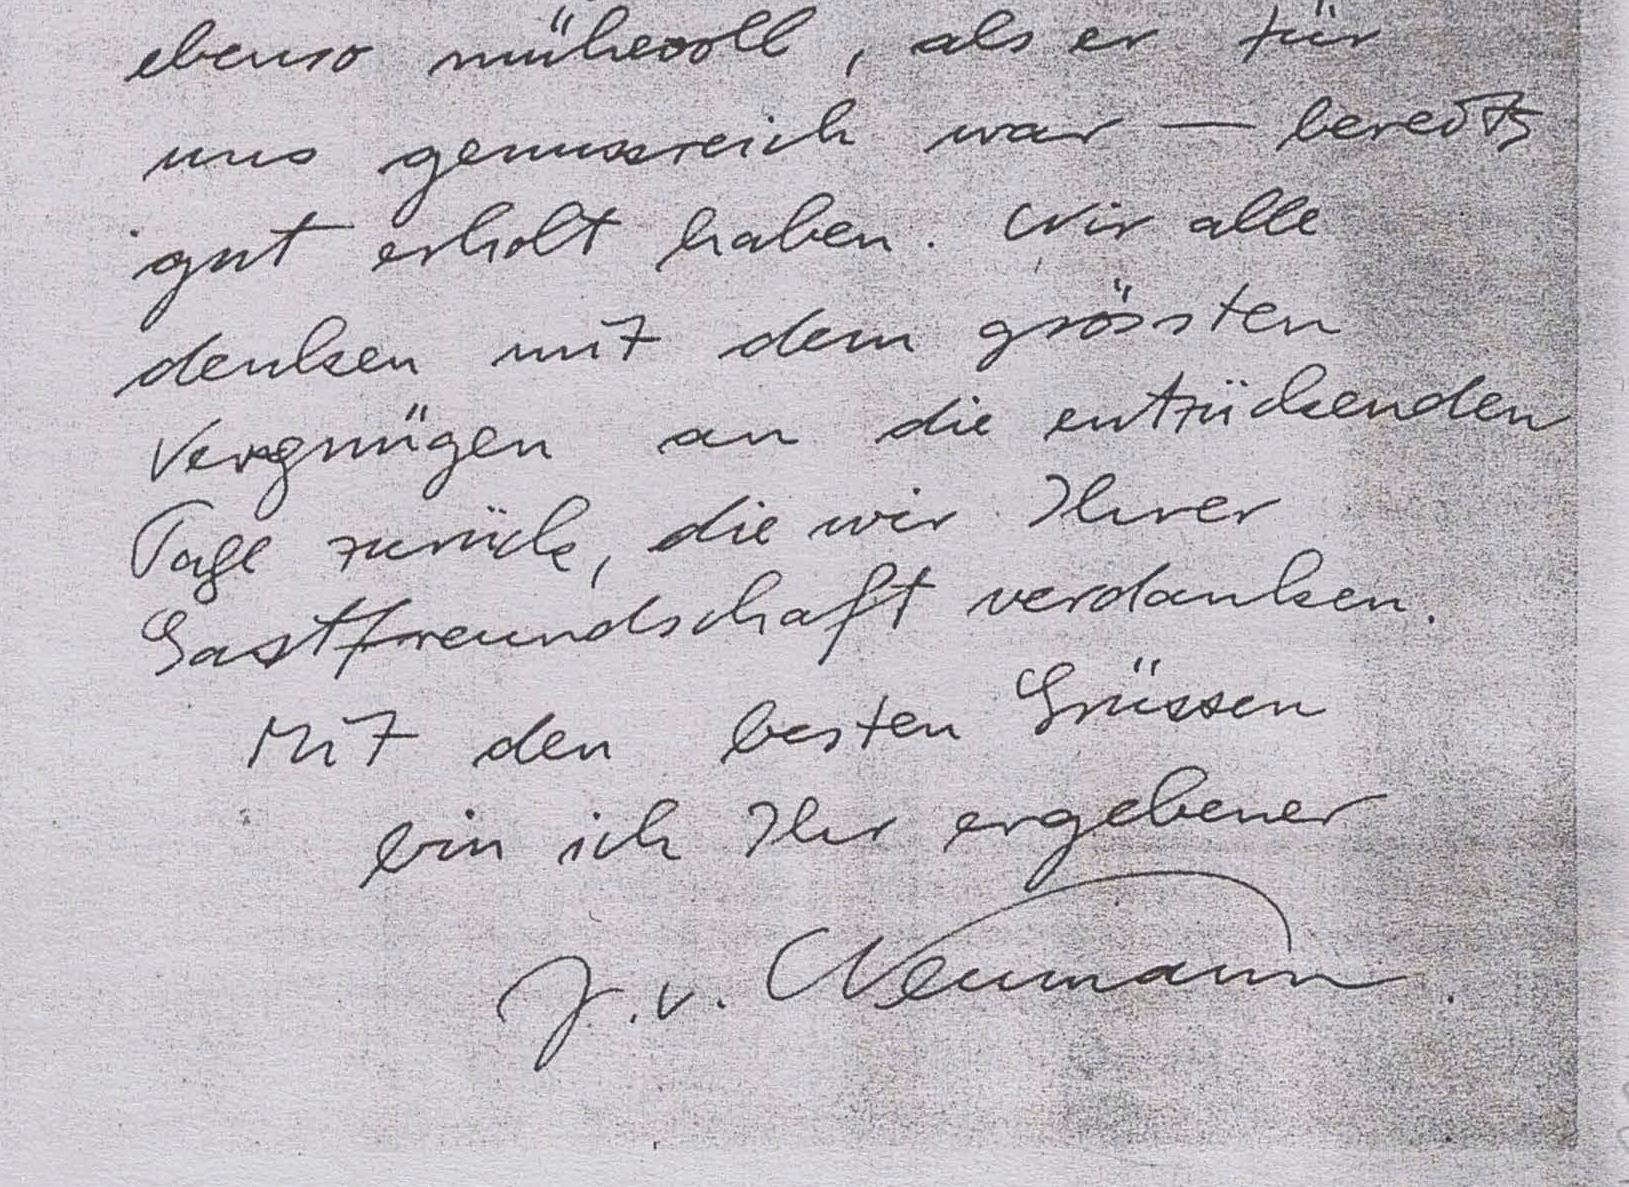 ebenso mühevoll, als er für
uns genussreich war — bereits
gut erholt haben. Wir alle
denken mit dem grössten
Vergnügen an die entzückenden
Tage zurück, die wir Ihrer
Gastfreundschaft verdanken.
Mit den besten Grüssen
bin ich Ihr ergebener
J. v. Neumann.